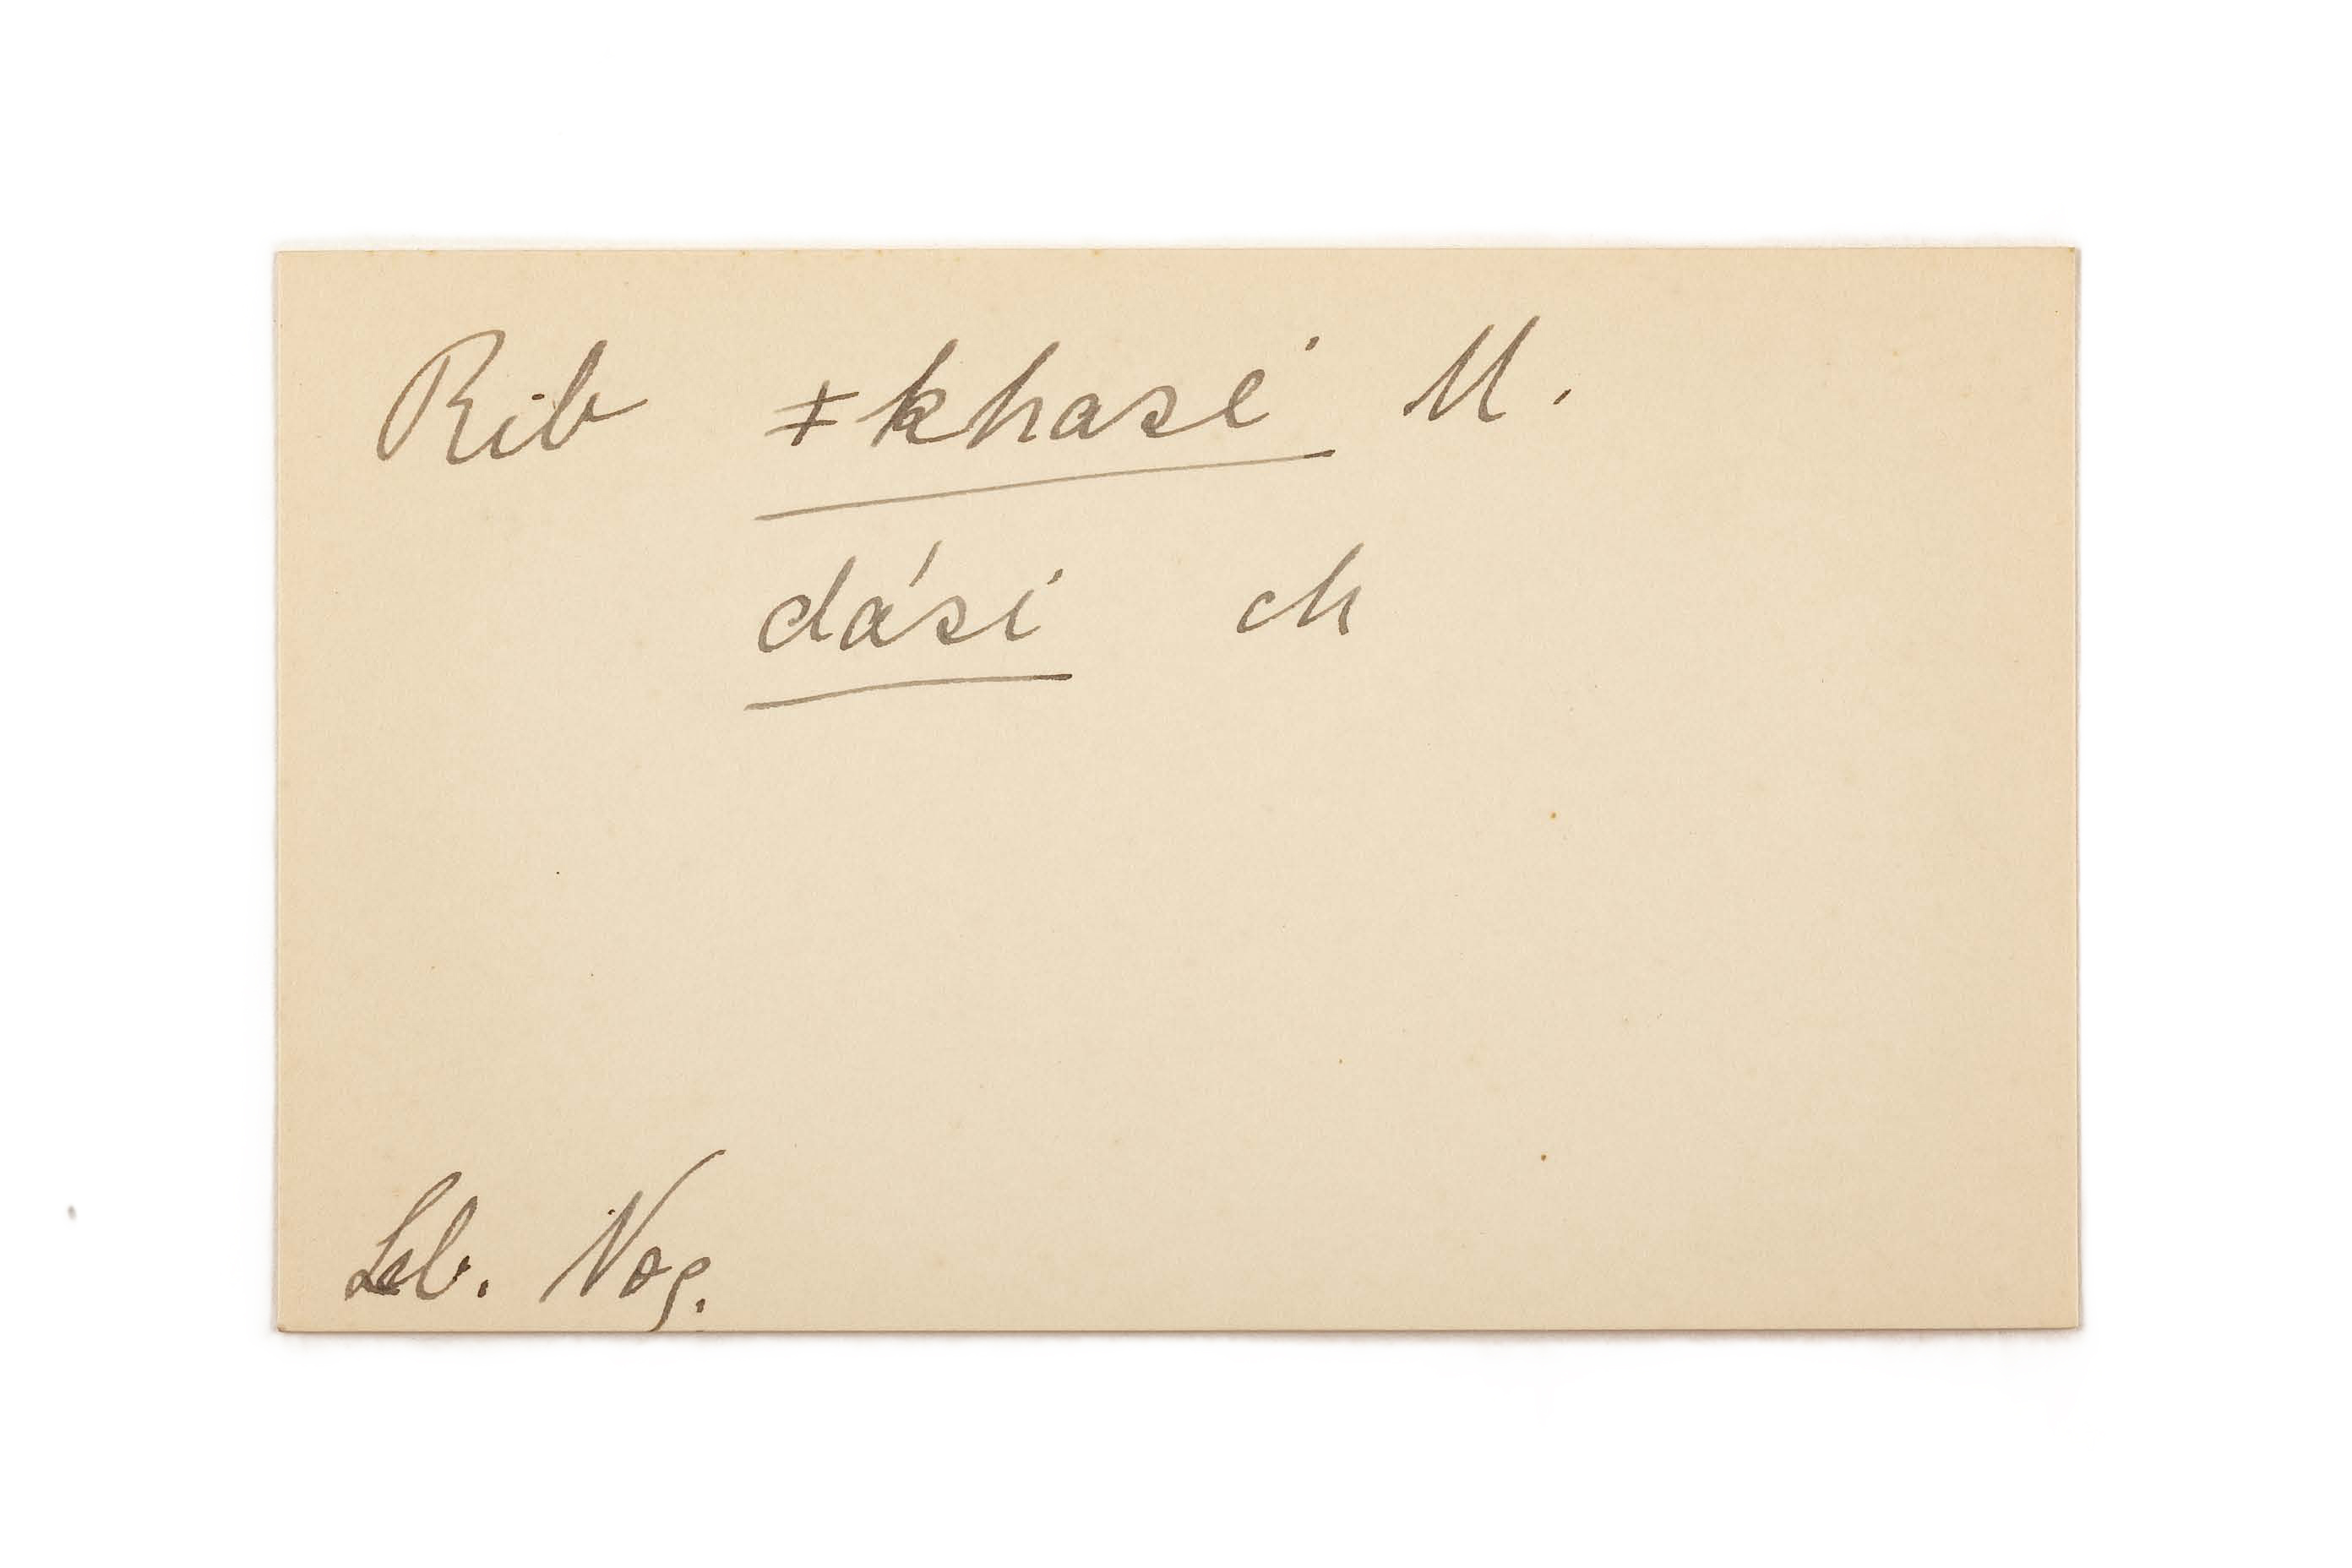 Rib ǂkhasi M.
dási ch
Leb. Nog.